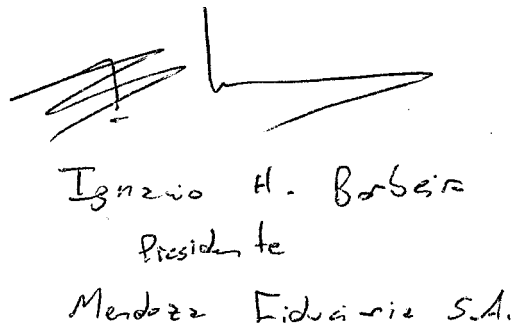 Ignacio H. Barbeira
Presidente
Mendoza Fiduciaria S.A.